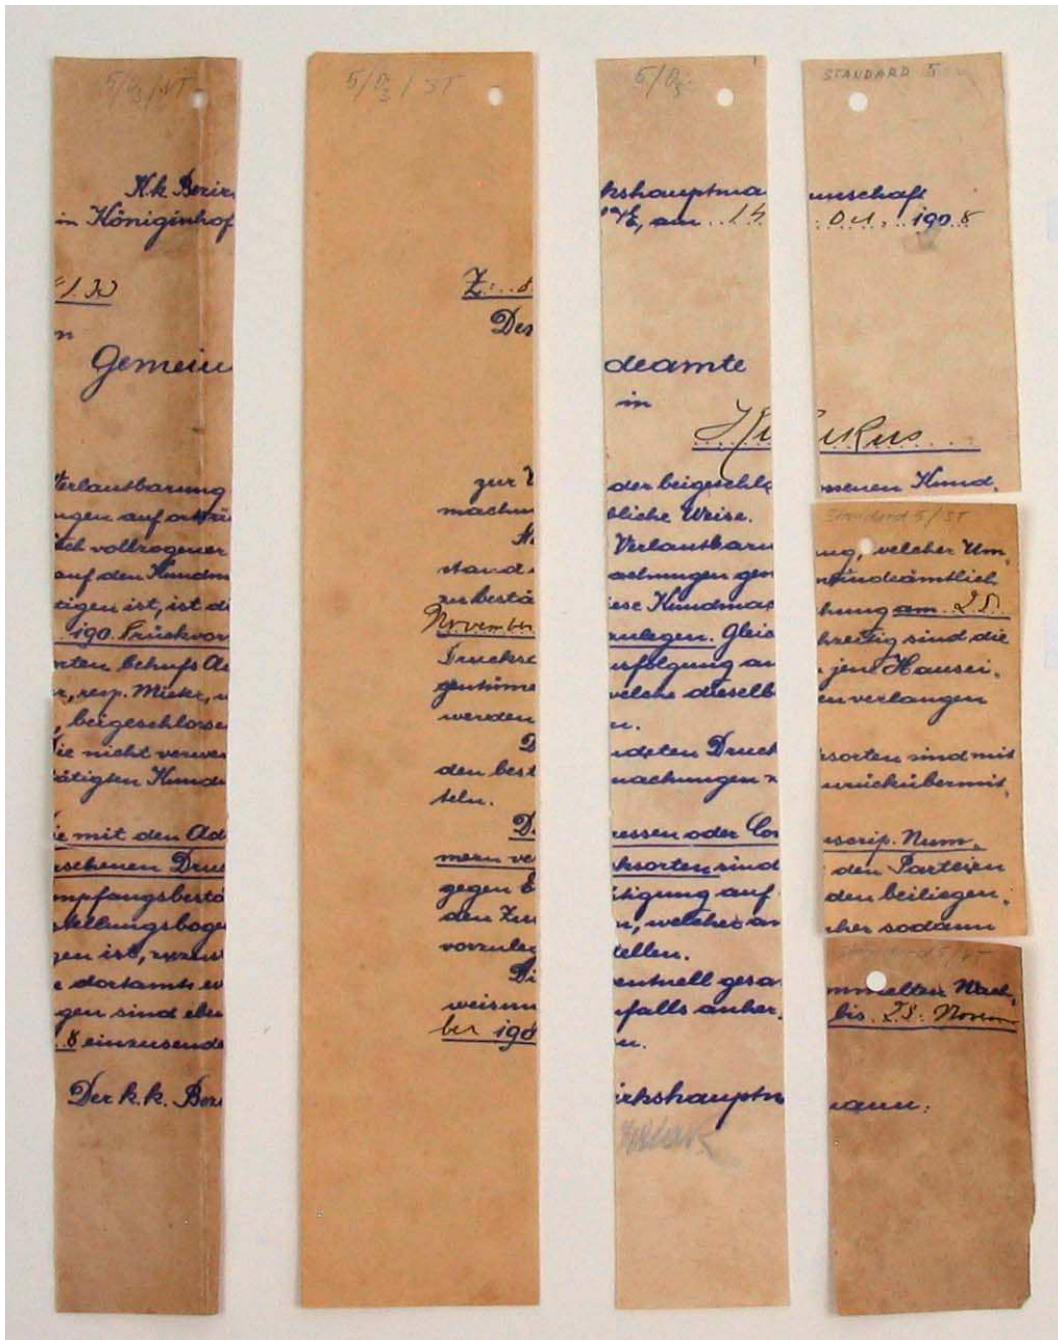 5/D3/ST
K.k. Bezir
in Königinhof
1.30
n
Gemein
Verlautbarung
ngen auf ortsü
ich vollzogener
auf den Kundm
tigen ist, ist di
190. 8 rückvor
rten behufs Au
r, resp. Mieter, w
, beigeschlosse
ie nicht verwe
tätigten Kundm
ie mit den Ad
rsehenen Druc
mpfangsbestä
stellungsboge
gen ist, zuzust
e dortamts ev
gen sind eben
. 8 einzusende
Der k.k. Bezi
5/D3/ST
Z: . . 8
Des
zur V
machun
N
stand
zu bestä
November
Drucks
genthüme
werden
D
den best
teln.
D
mern ve
gegen E
den Zu
vorzuleg
Di
weisun
ber 190
5/D3
kshauptma
a/E, am . . 14
deamte
in
Ku
der beigeschlo
bliche Weise.
Verlautbaru
achungen ge
iese Kundmac
zulegen. Gleic
usfolgung an
welche dieselb
n.
ndeten Druck
machungen z
ressen oder Con
cksorten sind
tigung auf
n, welcher an
tellen.
entuell gesa
falls anher
n.
irkshauptm
STANDARD 5
nnschaft
. Okt. . 190 8
kus
ssenen Kund,
Standard 5/ST
ung, welcher Um,
meindeämtlich
hung am . 25.
hzeitig sind die
jene Hausei,
en verlangen
ksorten sind mit
urückübermit,
nscrip. Num,
den Parteien
den beiliegen,
cher sodann
Standard 5/ST
mmelten Nach,
bis . 25. Novem
ann: